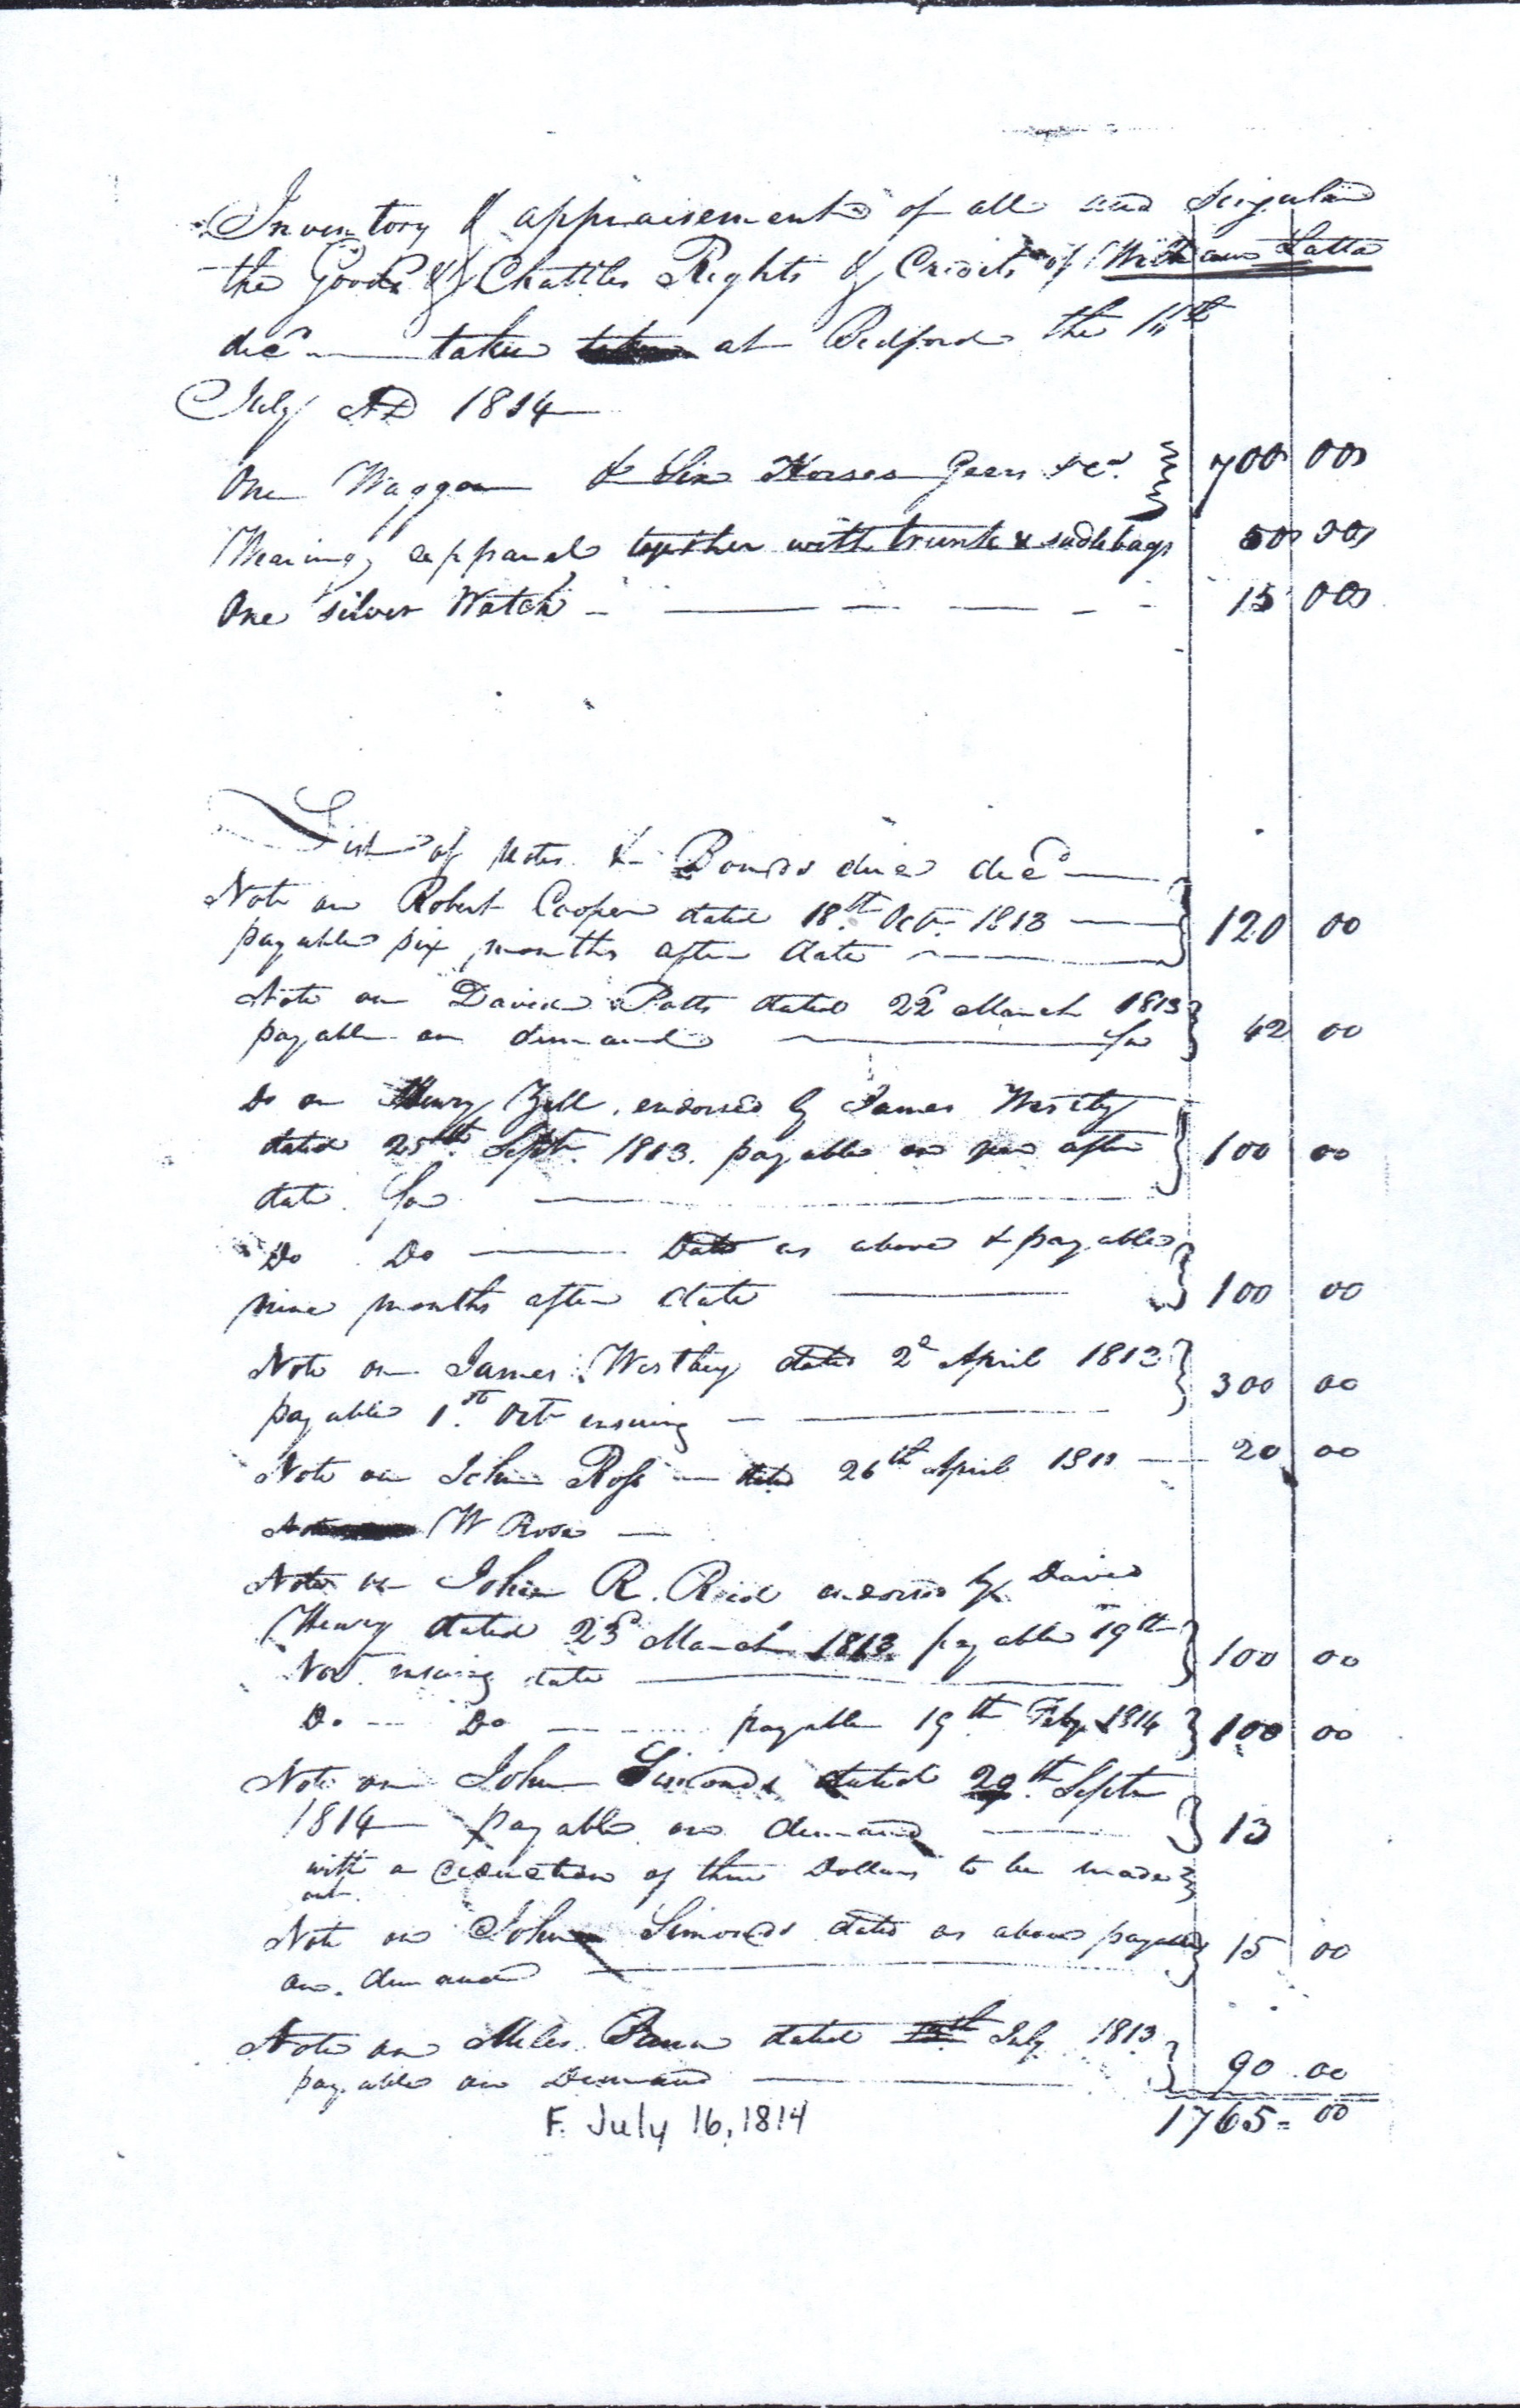 Inventory & appraisement of all and singular
the Goods & Chattles Rights & Credits of William Latta
decd — taken at Bedford the 11th
July AD 1814
One Waggon & Six Horses Gears &c. 700 00
Wearing apparel together with trunk & sadlebags 50 00
One silver Watch 15 00
List of Notes & Bonds due decd
Note on Robert Cooper dated 18th Oct. 1813
payable six months after date 120 00
Note on David Potts dated 22d March 1813
payable on demand for 42 00
Do on Henry Zell endorsed by James Westby
dated 25th Sept. 1813. payable on year after
date for 100 00
Do Do Date as above & payable
nine months after date 100 00
Note on James Westby dated 2d April 1813
payable 1st Oct ensuing 300 00
Note on John Ross dated 26th April 1811 20 00
W Rose
Note on John R. Reid endorsed by David
Henry dated 23d March 1813 payable 19th
Nov. ensuing date 100 00
Do Do payable 19th Feby 1814 100 00
Note on John Simonds dated 29th Septr
1814 payable on demand 13
with a deduction of three Dollars to be made
out
Note on John Simonds dated as above payable 15 00
on demand
Note on Miles dated July 1813
payable on Demand 90 00
1765= 00
F. July 16, 1814